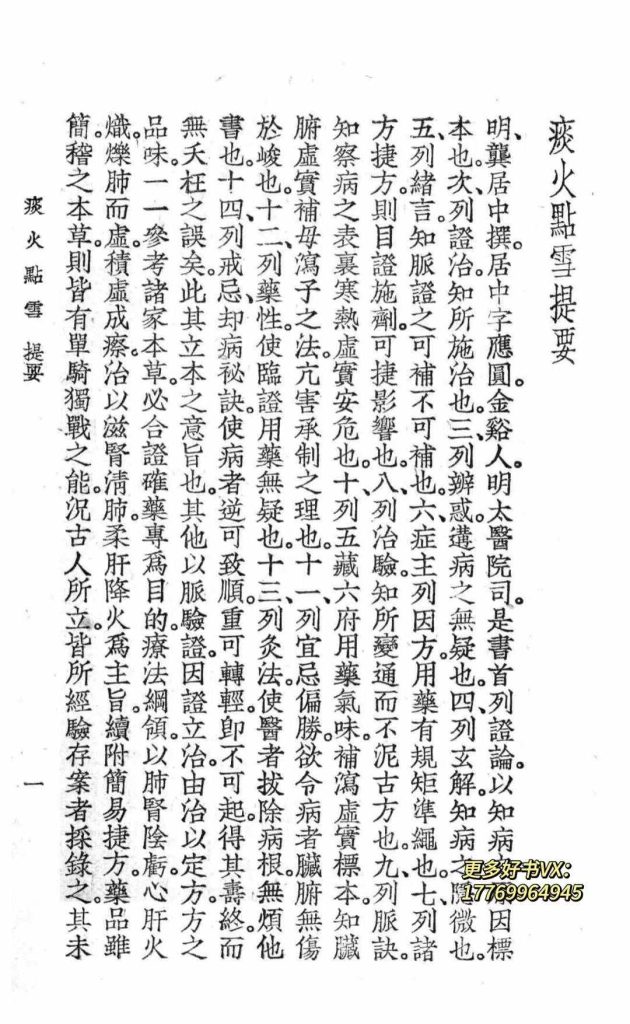 痰火點雪提要
明、龔居中撰。居中字應圓。金谿人。明太醫院司。是書首列證論。以知病因標
本也。次、列證治知所施治也。三、列辨惑遘病之無疑也。四、列玄解。知病之隱微也。
五、列緒言。知脈證之可補不可補也。六、症主列因方。用藥有規矩準繩也。七、列諸
方捷方。則目證施劑。可捷影響也。八、列治驗。知所變通而不泥古方也。九、列脈訣。
知察病之表裏寒熱虛實安危也。十、列五藏六府用藥氣味。補瀉虛實標本。知臟
腑虛實補母瀉子之法。亢害承制之理也。十一、列宜忌偏勝。欲令病者臟腑無傷
於峻也。十二、列藥性。使臨證用藥無疑也。十三、列灸法。使醫者拔除病根。無煩他
書也。十四、列戒忌。却病祕訣。使病者逆可致順。重可轉輕。卽不可起。得其壽終。而
無夭枉之誤矣。此其立本之意旨也。其他以脈驗證。因證立治。由治以定方。方之
品味。一一參考諸家本草。必合證確。藥專爲目的。療法綱領。以肺腎陰虧。心肝火
熾。爍肺而虛。積虛成瘵。治以滋腎清肺。柔肝降火爲主旨。續附簡易捷方。藥品雖
簡。稽之本草。則皆有單騎獨戰之能。況古人所立。皆所經驗存案者採錄之。其未
痰火點雪 提要
一
更多好书VX:
17769964945